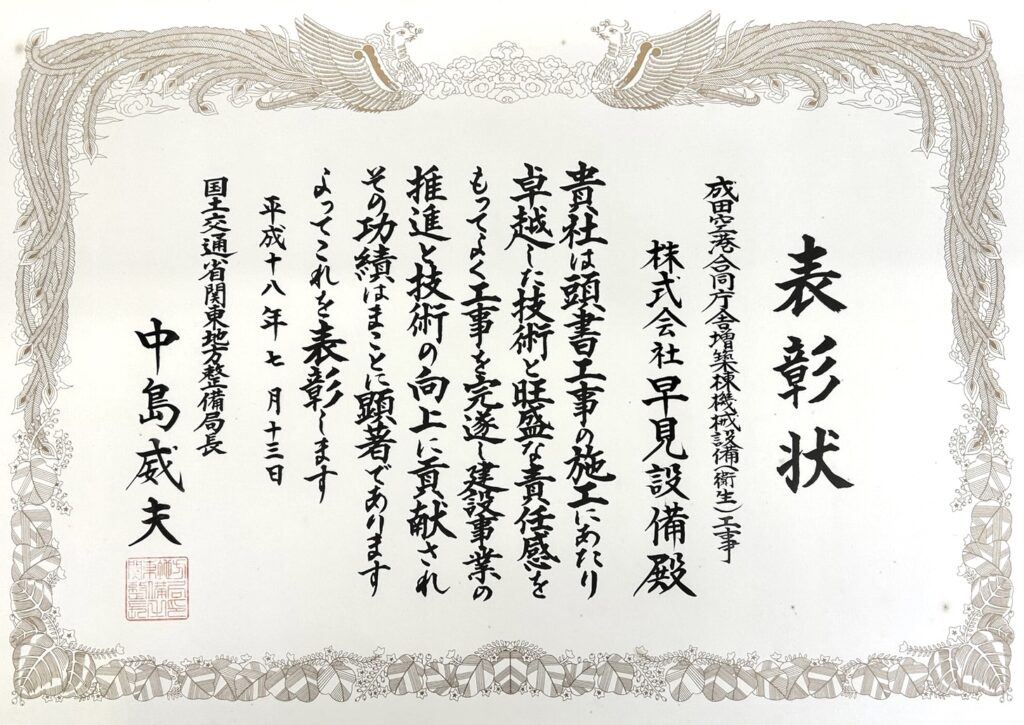 表彰状
成田空港合同庁舎増築棟機械設備(衛生)工事
株式会社早見設備殿
貴社は頭書工事の施工にあたり
卓越した技術と旺盛な責任感を
もってよく工事を完遂し建設事業の
推進と技術の向上に貢献され
その功績はまことに顕著であります
よってこれを表彰します
平成十八年七月十三日
国土交通省関東地方整備局長
中島威夫